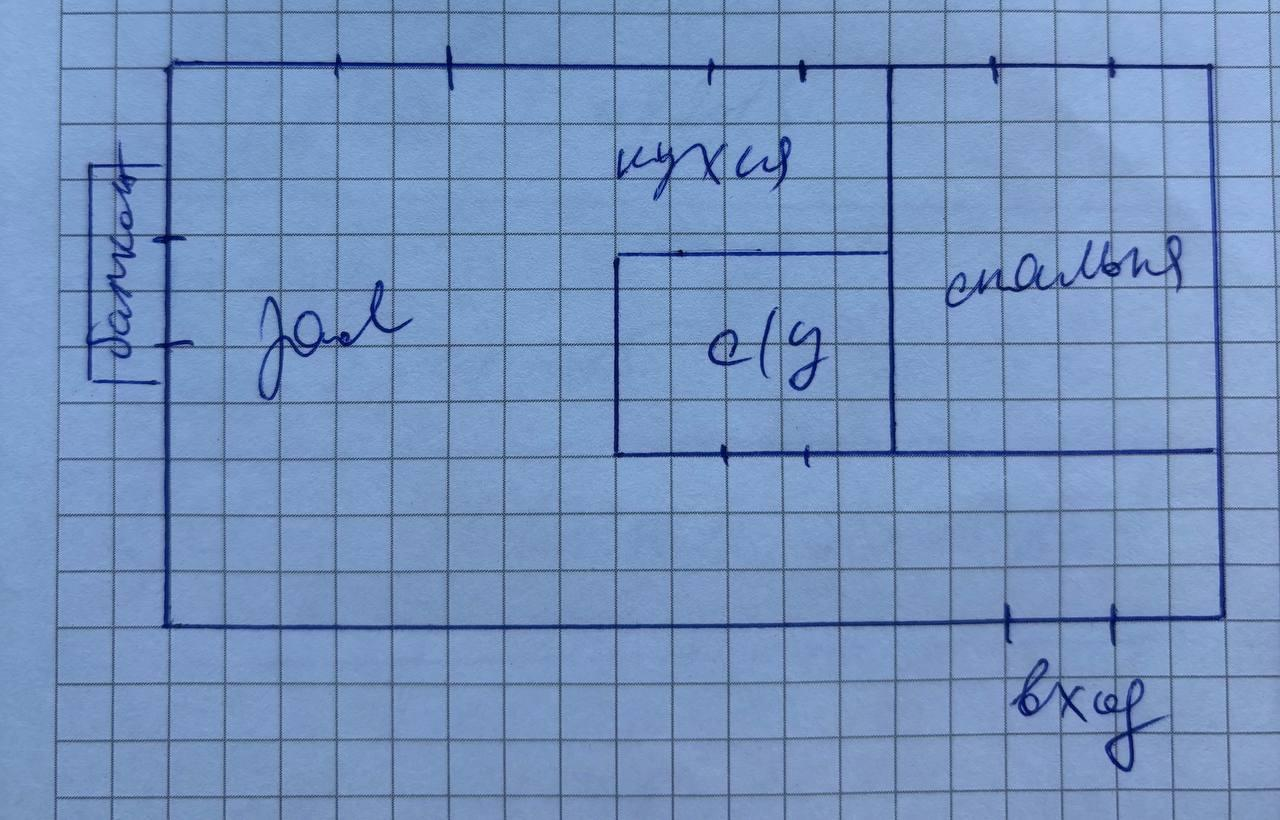 кухня
спальня
балкон
зал
с/у
вход